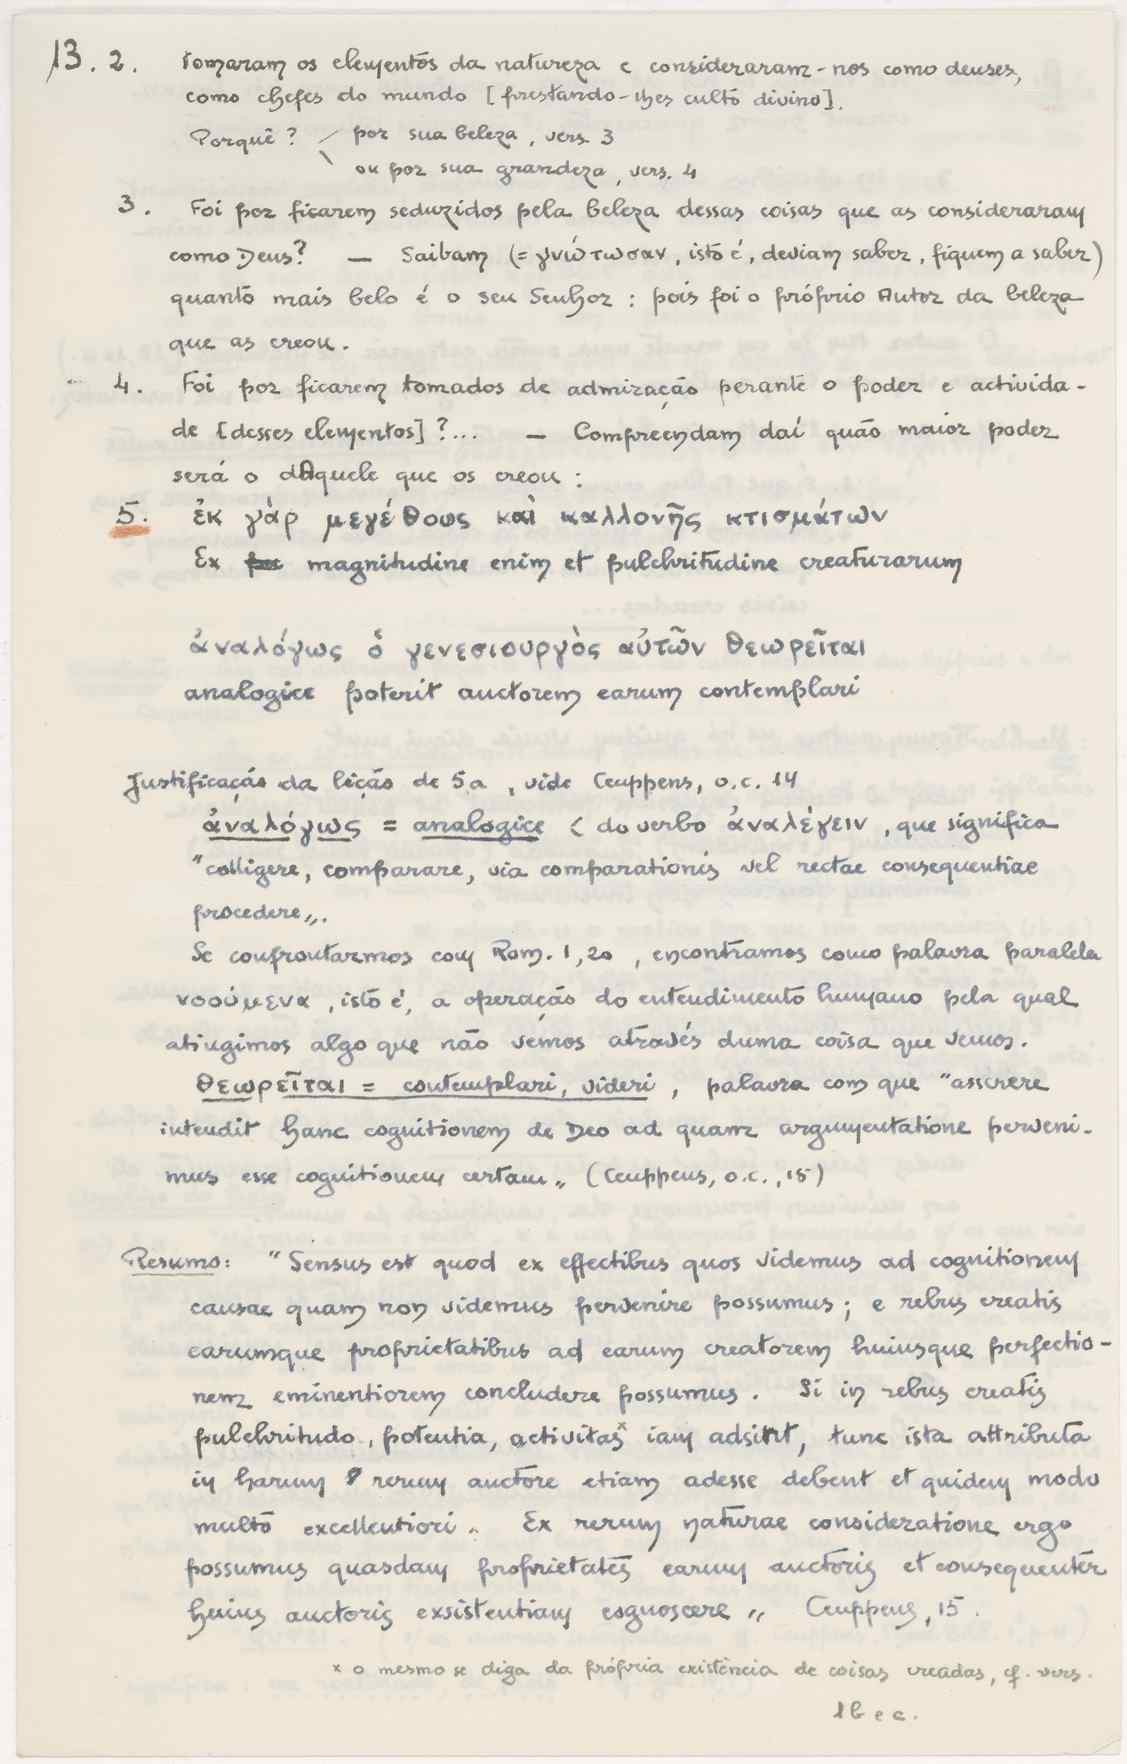 13. 2. tomaram os elementos da natureza e consideraram-nos como deuses,
como chefes do mundo [prestando-lhes culto divino].
Porquê? / por sua beleza, vers. 3
\ ou por sua grandeza, vers. 4
3. Foi por ficarem seduzidos pela beleza dessas coisas que as consideraram
como Deus? — Saibam (= γνώτωσαν, isto é, deviam saber, fiquem a saber)
quanto mais belo é o seu Senhor: pois foi o próprio Autor da beleza
que as creou.
4. Foi por ficarem tomados de admiração perante o poder e activida-
de [desses elementos]?... — Compreendam daí quão maior poder
será o dAquele que os creou:
5. ἐκ γὰρ μεγέθους καὶ καλλονῆς κτισμάτων
Ex magnitudine enim et pulchritudine creaturarum
ἀναλόγως ὁ γενεσιουργὸς αὐτῶν θεωρεῖται
analogice poterit auctorem earum contemplari
Justificação da lição de 5a, vide Ceuppens, o.c. 14
ἀναλόγως = analogice < do verbo ἀναλέγειν, que significa
"colligere, comparare, via comparationis vel rectae consequentiae
procedere„.
Se confrontarmos com Rom. 1,20, encontramos como palavra paralela
νοούμενα, isto é, a operação do entendimento humano pela qual
atingimos algo que não vemos através duma coisa que vemos.
θεωρεῖται = contemplari, videri, palavra com que "asserere
intendit hanc cognitionem de Deo ad quam argumentatione perveni-
mus esse cognitionem certam„ (Ceuppens, o.c., 15)
Resumo: "Sensus est quod ex effectibus quos videmus ad cognitionem
causae quam non videmus pervenire possumus; e rebus creatis
earumque proprietatibus ad earum creatorem huiusque perfectio-
nem eminentiorem concludere possumus. Si in rebus creatis
pulchritudo, potentia, activitas x iam adsint, tunc ista attributa
in harum rerum auctore etiam adesse debent et quidem modo
multo excellentiori„. Ex rerum naturae consideratione ergo
possumus quasdam proprietates earum auctoris et consequenter
huius auctoris exsistentiam cognoscere„ Ceuppens, 15.
x o mesmo se diga da própria existência de coisas creadas, cf. vers.
1b e c.